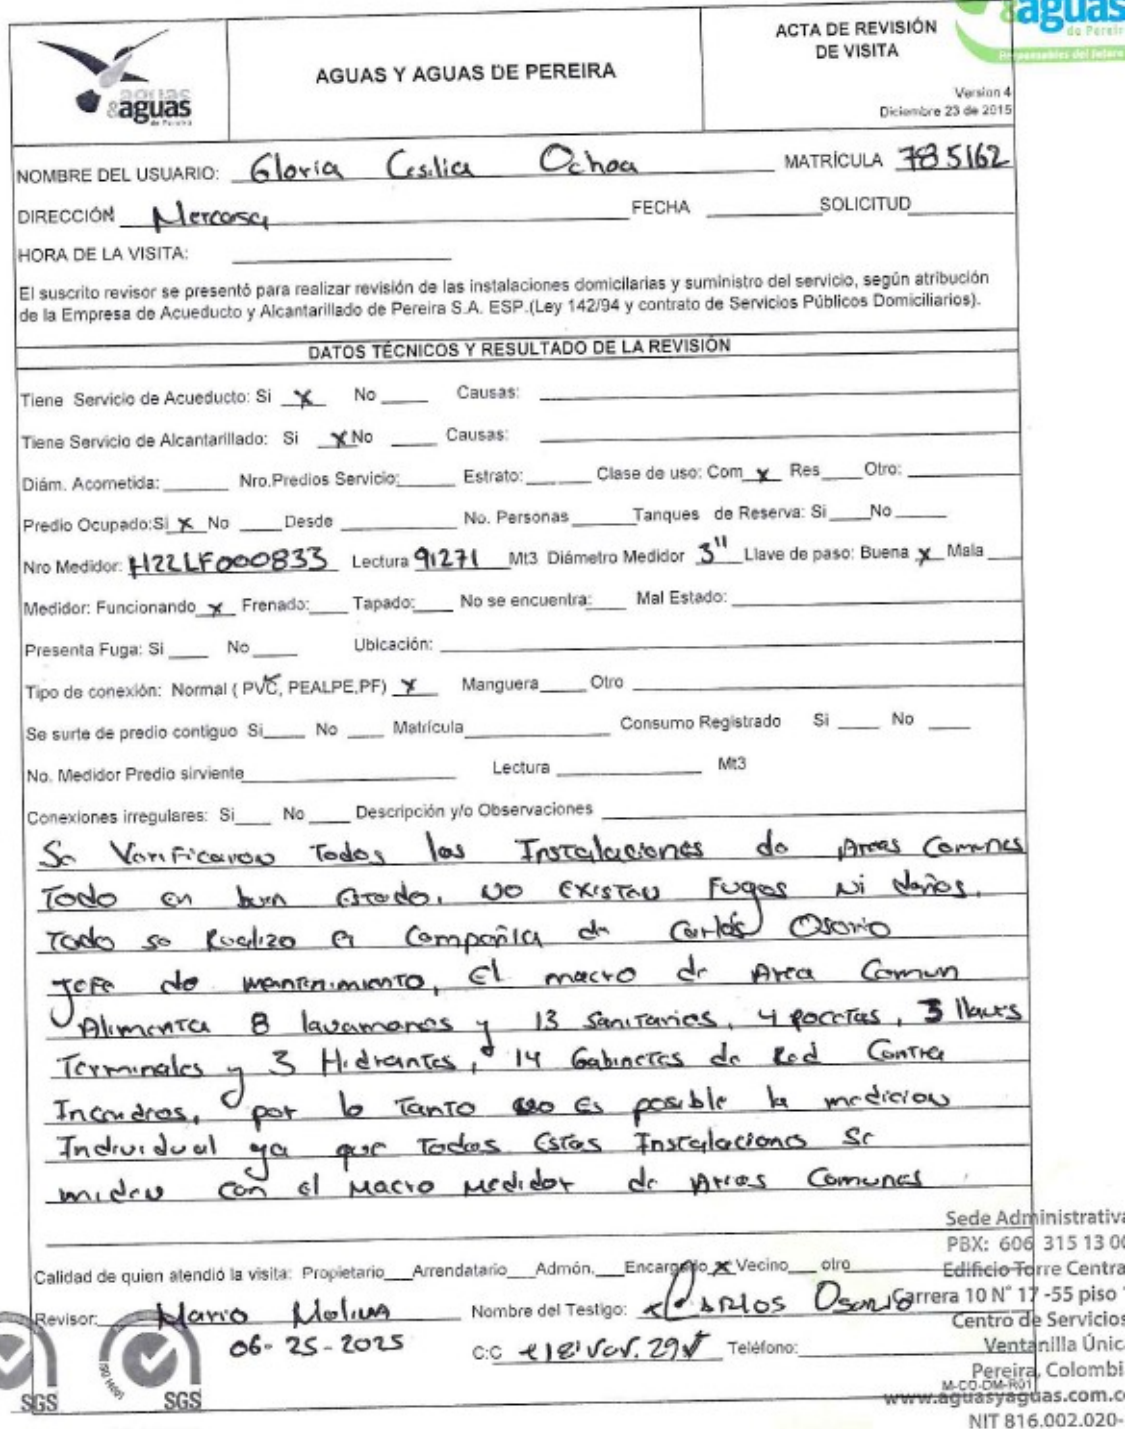 &aguas
de Pereira
Responsables del futuro
&aguas
de Pereira
AGUAS Y AGUAS DE PEREIRA
ACTA DE REVISIÓN
DE VISITA
Version 4
Diciembre 23 de 2015
NOMBRE DEL USUARIO: Gloria Cesilia Ochoa MATRÍCULA 785162
DIRECCIÓN Mercasa FECHA SOLICITUD
HORA DE LA VISITA:
El suscrito revisor se presentó para realizar revisión de las instalaciones domiciliarias y suministro del servicio, según atribución
de la Empresa de Acueducto y Alcantarillado de Pereira S.A. ESP.(Ley 142/94 y contrato de Servicios Públicos Domiciliarios).
DATOS TÉCNICOS Y RESULTADO DE LA REVISIÓN
Tiene Servicio de Acueducto: Si x No Causas:
Tiene Servicio de Alcantarillado: Si x No Causas:
Diám. Acometida: Nro.Predios Servicio: Estrato: Clase de uso: Com x Res Otro:
Predio Ocupado:Si x No Desde No. Personas Tanques de Reserva: Si No
Nro Medidor: H22LF000833 Lectura 91271 Mt3 Diámetro Medidor 3" Llave de paso: Buena x Mala
Medidor: Funcionando x Frenado: Tapado: No se encuentra: Mal Estado:
Presenta Fuga: Si No Ubicación:
Tipo de conexión: Normal ( PVC, PEALPE,PF) x Manguera Otro
Se surte de predio contiguo Si No Matrícula Consumo Registrado Si No
No. Medidor Predio sirviente Lectura Mt3
Conexiones irregulares: Si No Descripción y/o Observaciones
Se Verificaron Todos las Instalaciones de Areas Comunes
Todo en buen Estado. No existen Fugas Ni daños.
Todo se Realizo en Compañia de Carlos Osorio
Jefe de mantenimiento, El macro de Area Comun
Alimenta 8 lavamanos y 13 Sanitarios, 4 pocetas, 3 llaves
Terminales y 3 Hidrantes, 14 Gabinetes de Red Contra
Incendios, por lo Tanto no es posible la medicion
Individual ya que Todas Estas Instalaciones Se
miden con el Macro Medidor de Areas Comunes
Calidad de quien atendió la visita: Propietario Arrendatario Admón. Encargado x Vecino otro
Revisor: Mario Molina Nombre del Testigo: Carlos Osorio
06-25-2025 C:C Teléfono:
Sede Administrativa
PBX: 606 315 13 00
Edificio Torre Central
Carrera 10 N° 17 -55 piso
Centro de Servicios
Ventanilla Única
Pereira, Colombi
M-CO-DM-R01
www.aguasyaguas.com.co
NIT 816.002.020-
ISO 14001
SGS
SGS